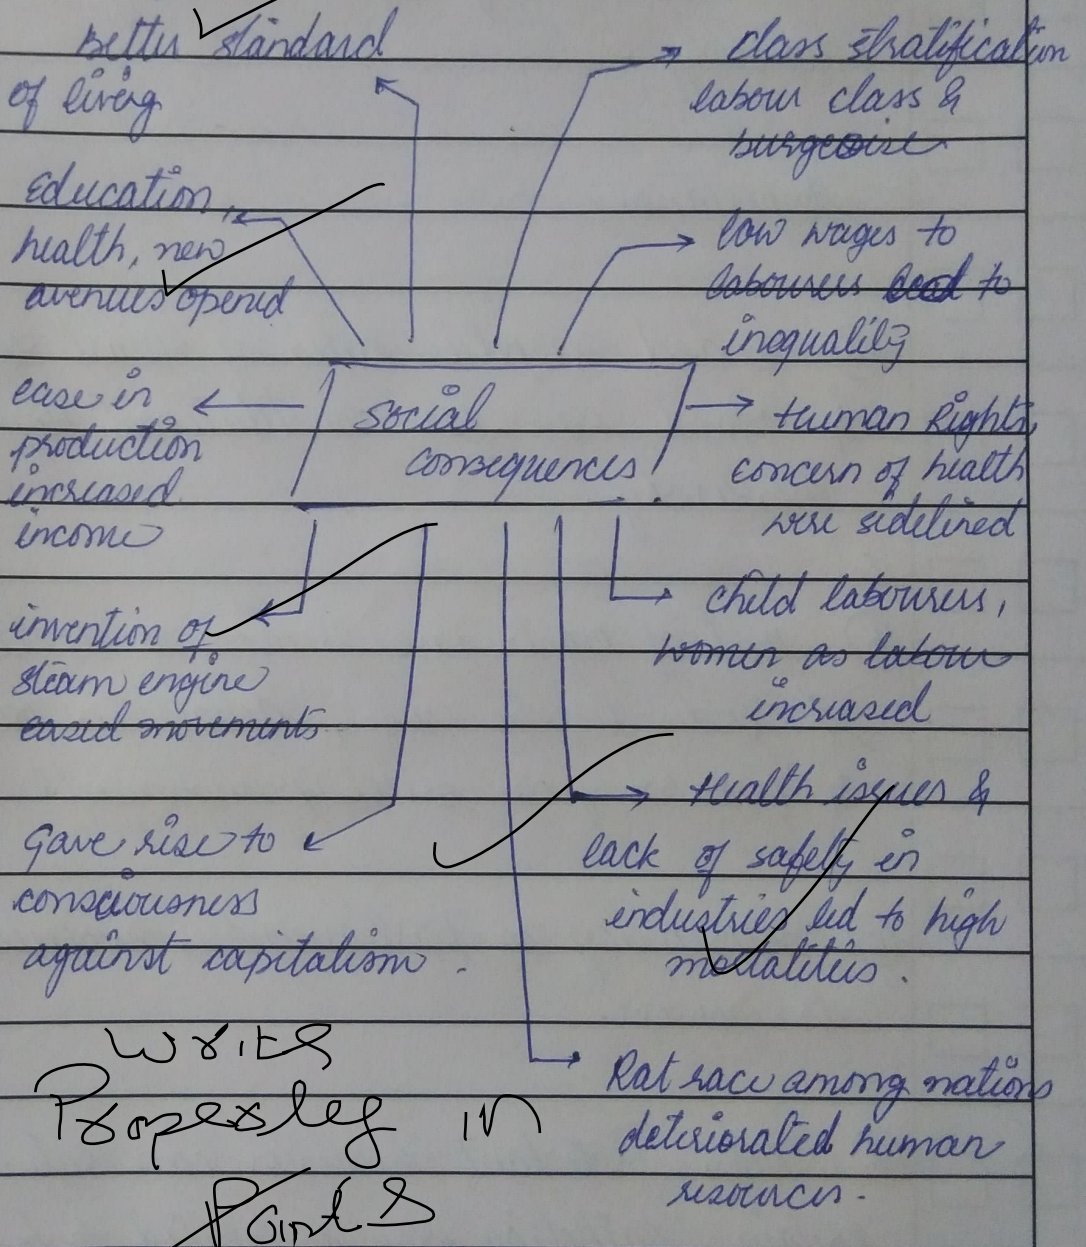 Better standard
of living
Education,
health, new
avenues opened
ease in
production
increased
income
invention of
steam engine
eased movements
Gave rise to
consciousness
against capitalism.
Social
consequences
class stratification
labour class &
burgeoise
low wages to
labourers led to
inequality
Human Rights,
concern of health
were sidelined
child labourers,
women as labour
increased
Health issues &
lack of safety in
industries led to high
mortalities.
Rat race among nations
deteriorated human
resources.
Write
Properley in
Points